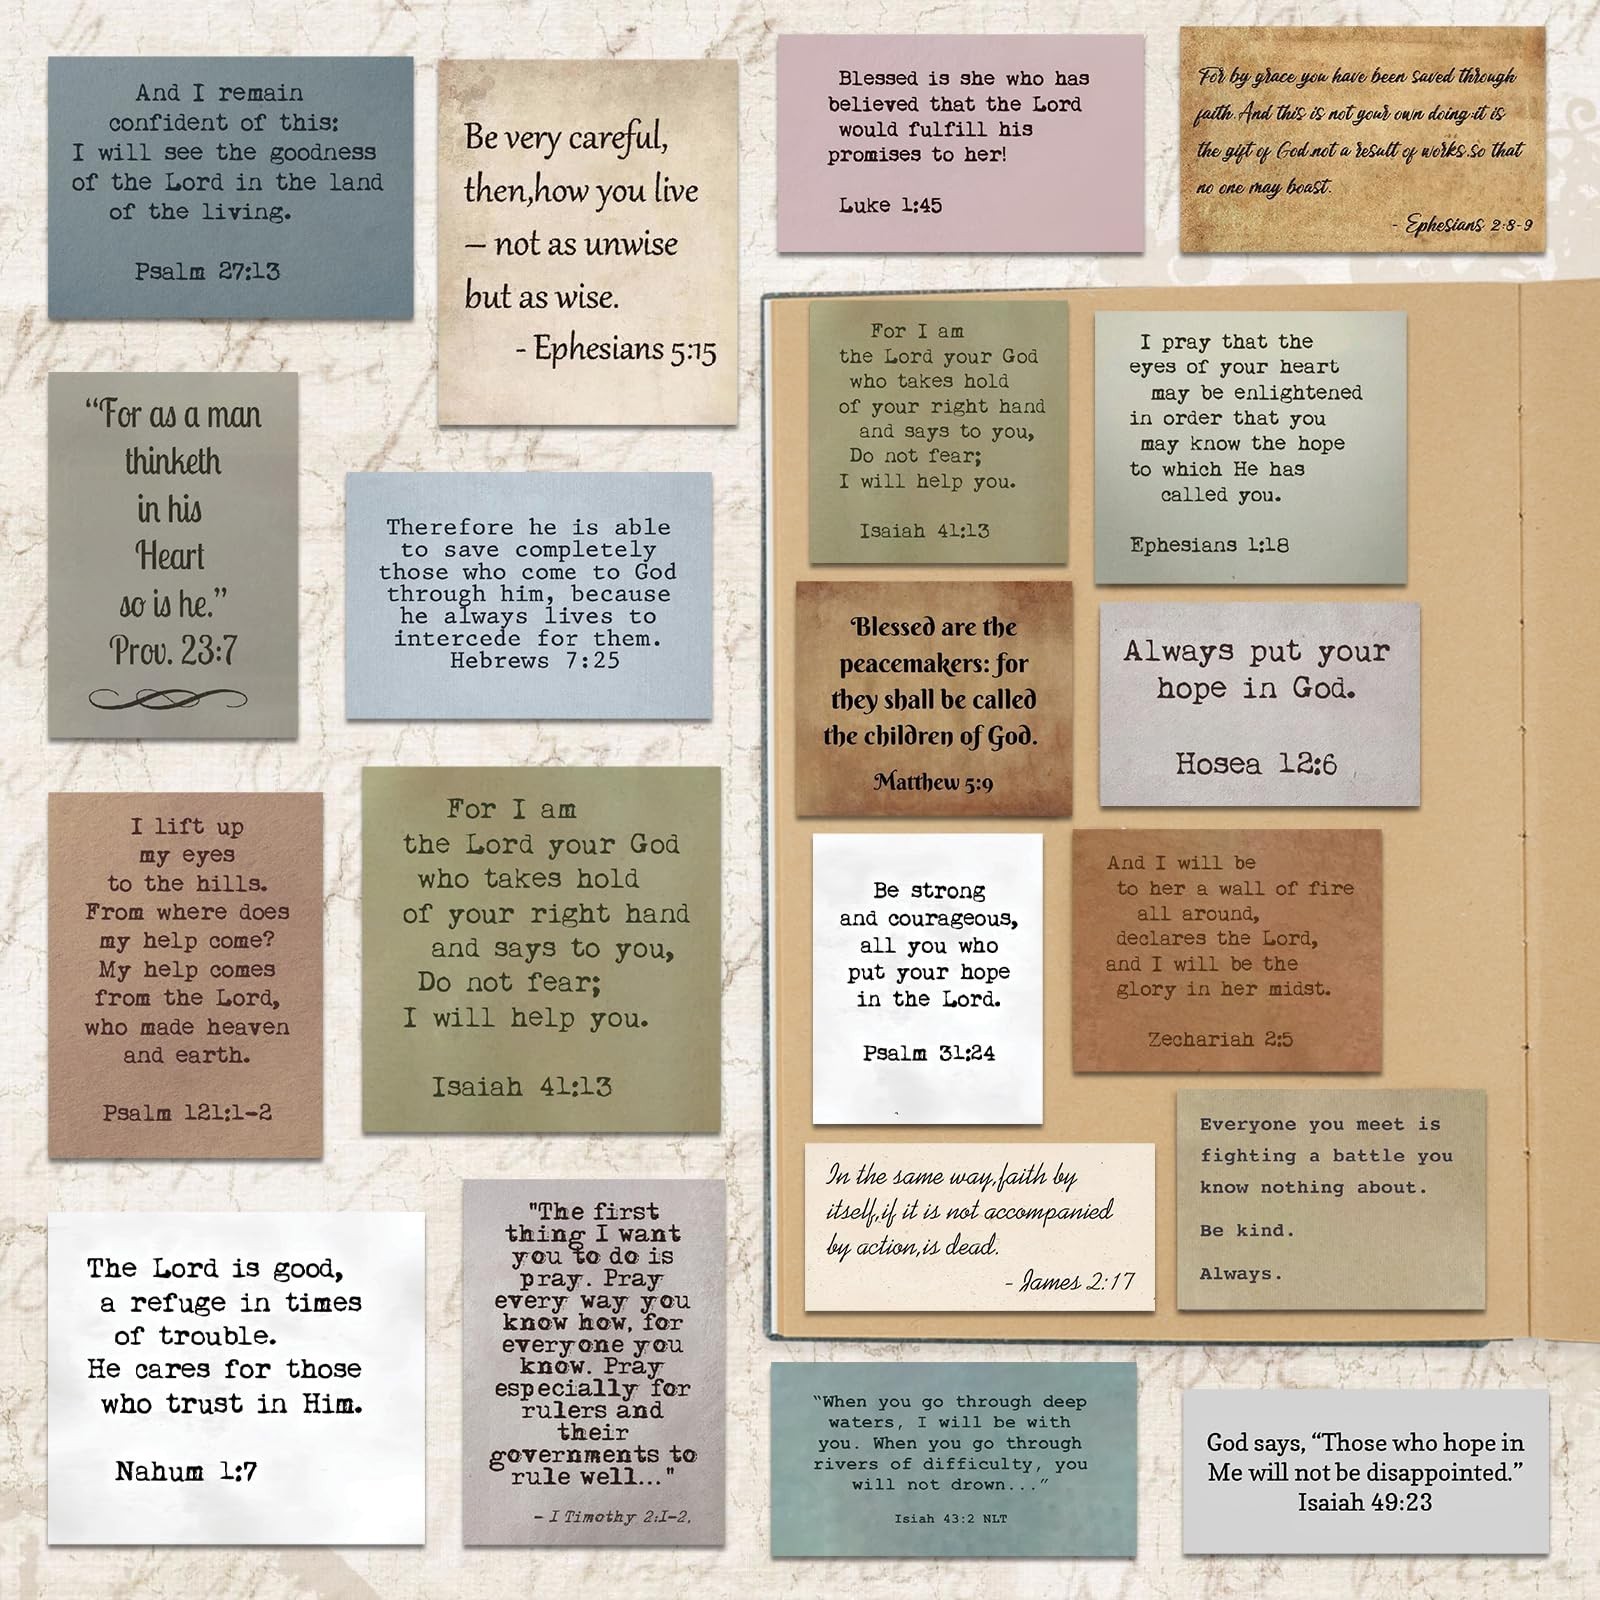 And I remain
confident of this:
I will see the goodness
of the Lord in the land
of the living.
Psalm 27:13
Be very careful,
then,how you live
– not as unwise
but as wise.
- Ephesians 5:15
Blessed is she who has
believed that the Lord
would fulfill his
promises to her!
Luke 1:45
For by grace you have been saved through
faith.And this is not your own doing:it is
the gift of God.not a result of works.so that
no one may boast.
- Ephesians 2:8-9
“For as a man
thinketh
in his
Heart
so is he.”
Prov. 23:7
Therefore he is able
to save completely
those who come to God
through him, because
he always lives to
intercede for them.
Hebrews 7:25
For I am
the Lord your God
who takes hold
of your right hand
and says to you,
Do not fear;
I will help you.
Isaiah 41:13
I pray that the
eyes of your heart
may be enlightened
in order that you
may know the hope
to which He has
called you.
Ephesians 1:18
Blessed are the
peacemakers: for
they shall be called
the children of God.
Matthew 5:9
Always put your
hope in God.
Hosea 12:6
I lift up
my eyes
to the hills.
From where does
my help come?
My help comes
from the Lord,
who made heaven
and earth.
Psalm 121:1-2
For I am
the Lord your God
who takes hold
of your right hand
and says to you,
Do not fear;
I will help you.
Isaiah 41:13
Be strong
and courageous,
all you who
put your hope
in the Lord.
Psalm 31:24
And I will be
to her a wall of fire
all around,
declares the Lord,
and I will be the
glory in her midst.
Zechariah 2:5
In the same way,faith by
itself,if it is not accompanied
by action,is dead.
- James 2:17
Everyone you meet is
fighting a battle you
know nothing about.
Be kind.
Always.
The Lord is good,
a refuge in times
of trouble.
He cares for those
who trust in Him.
Nahum 1:7
"The first
thing I want
you to do is
pray. Pray
every way you
know how, for
everyone you
know. Pray
especially for
rulers and
their
governments to
rule well..."
- I Timothy 2:1-2,
“When you go through deep
waters, I will be with
you. When you go through
rivers of difficulty, you
will not drown...”
Isiah 43:2 NLT
God says, “Those who hope in
Me will not be disappointed.”
Isaiah 49:23